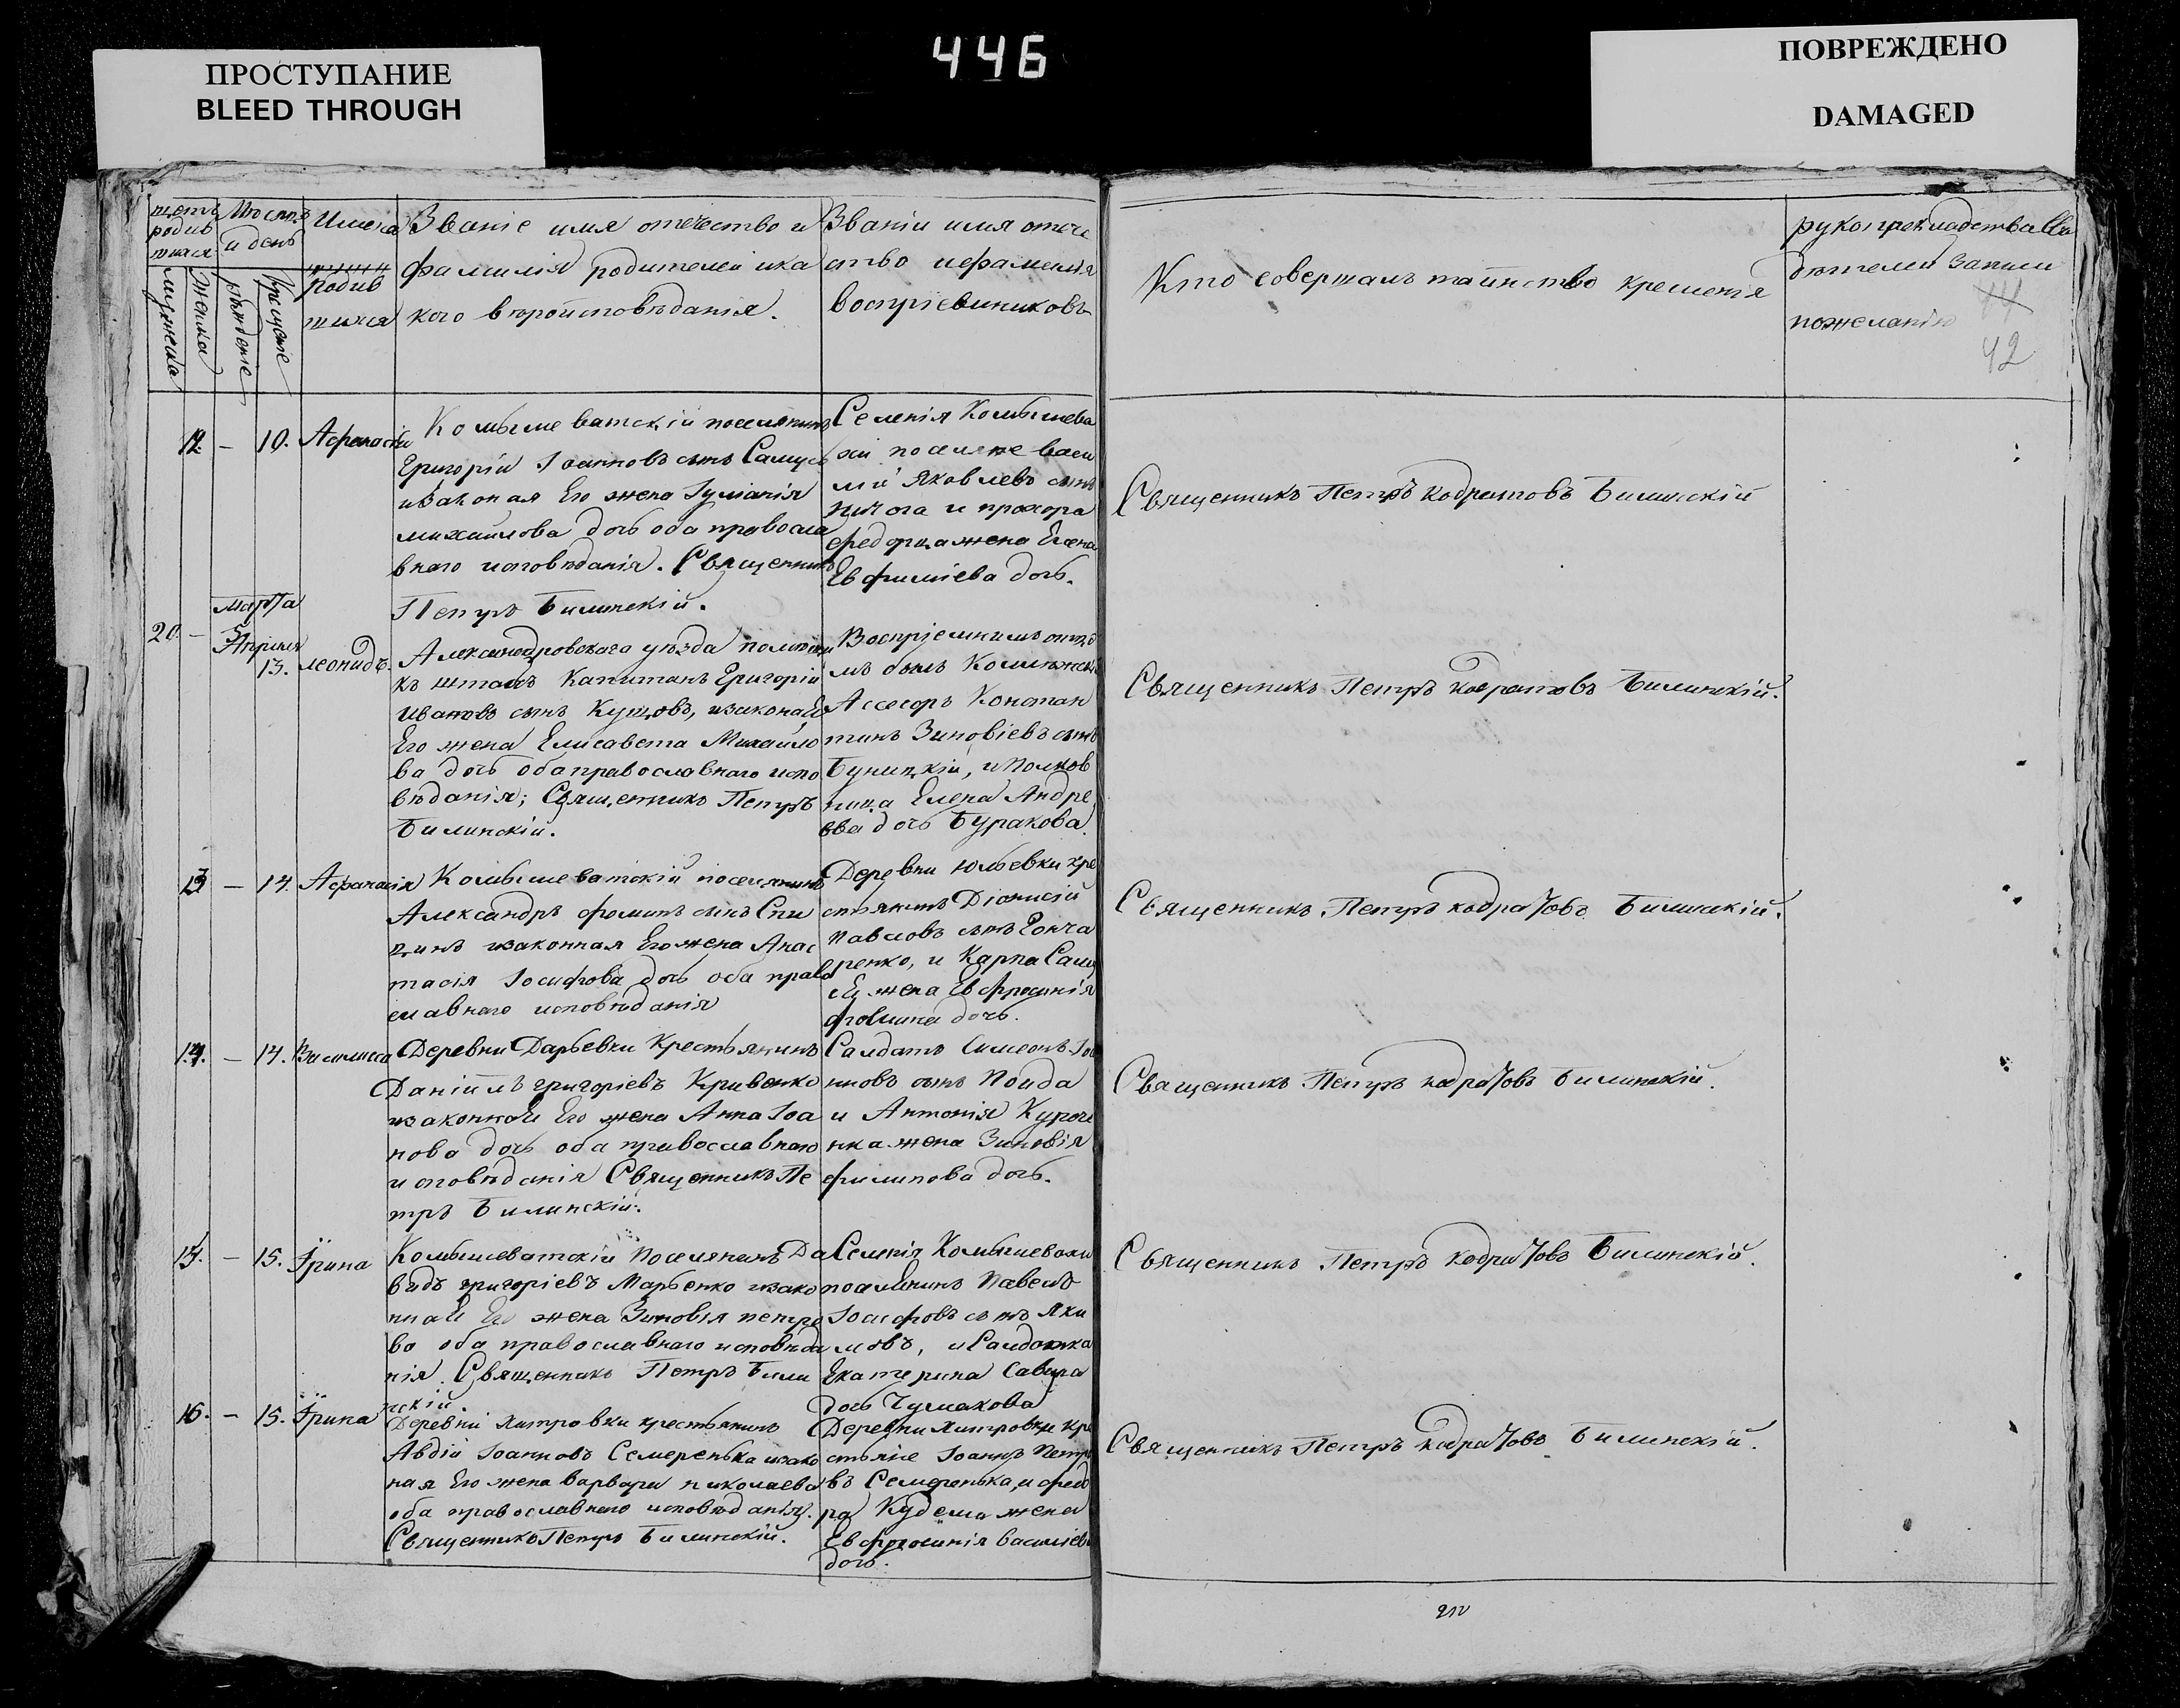 446
ПРОСТУПАНИЕ
BLEED THROUGH
ПОВРЕЖДЕНО
DAMAGED
щетъ родив шихся
мужеска
женска
Месяцъ и день
рожденіе
крещеніе
Имена
родив
шихся
Званіе имя отечество и
фамилія родителей и ка
кого вероисповѣданія.
Званіи имя отече
ство и фамилія
воспріемниковъ
Кто совершалъ таинство крещенія
рукоприкладство сви
дѣтелей записи
по желанію
42
12. — 10. Афанасія
Комышеватскій поселянинъ
Григорій Іоанновъ сынъ Самусь
и законая Его жена Іуліанія
михаилова дочь оба правосла
внаго исповѣданія. Священникъ
Петръ Билинскій.
Селенія Комышева
хи поселяне васи
лій Яковлевъ сынъ
и прохора
федорца жена Елена
Евфиміева дочь.
Священникъ Петръ Кодратовъ Билинскій
20. —
Марта
5
Апреля
13. Леонидъ.
Александровскаго уѣзда помѣщи
къ штабъ Капитанъ Григорій
Ивановъ сынъ Кущовъ, и законая
Его жена Елисавета Михайло
ва дочь оба православнаго испо
вѣданія; Священникъ Петръ
Билинскій.
Воспріемникомъ
мъ былъ Колежскій
Ассесоръ Констан
тинъ Зиновіевъ сынъ
Буницкій, и Полков
ница Елена Андре
ева дочь Буракова.
Священникъ Петръ Кодратовъ Билинскій.
13 — 14. Афанасія
Комышеватскій поселянинъ
Александръ фоминъ сынъ Спи
цинъ и законная Его жена Анас
тасія Іосифова дочь оба право
славнаго исповѣданія
Деревни Юльевки кре
стянинъ Діонисій
Павловъ сынъ Гонча
ренко, и Карпа Саму
ся жена Евфросинія
фомина дочь.
Священникъ Петръ кодратовъ Билинскій.
14. — 14. Василиса
Деревни Дарьевки Крестьянинъ
Даніилъ григоріевъ Кривенко
и законная Его жена Анна Іоа
нова дочь оба православнаго
исповѣданія Священникъ Пе
тръ Билинскій.
Салдатъ Симеонъ Іоа
нновъ сынъ Поида
и Антонія Куроче
нка жена Зиновія
филипова дочь.
Священникъ Петръ кодратовъ Билинскій.
15. — 15. Ірина
Комышеватскій Поселянинъ Да
видъ григоріевъ Марьенко и зако
нная Его жена Зиновія петро
ва оба православнаго исповѣда
нія. Священникъ Петръ Били
нскій.
Селенія Комышевахи
поселянинъ Павелъ
Іосифовъ сынъ Яки
мовъ, и Салдатка
Екатерина Савина
дочь Чумакова
Священникъ Петръ Кодратовъ Билинскій.
16. — 15. Ірина
Деревни Хитровки крестьянинъ
Авдій Іоанновъ Семеренька и зако
ная Его жена варвара николаева
оба православнаго исповѣданія.
Священникъ Петръ Билинскій.
Деревни Хитровки кре
стьяне Іоаннъ Петро
въ Семеренька, и федо
ра Кудема жена
Евфросинія василіева
дочь.
Священникъ Петръ кодратовъ Билинскій.